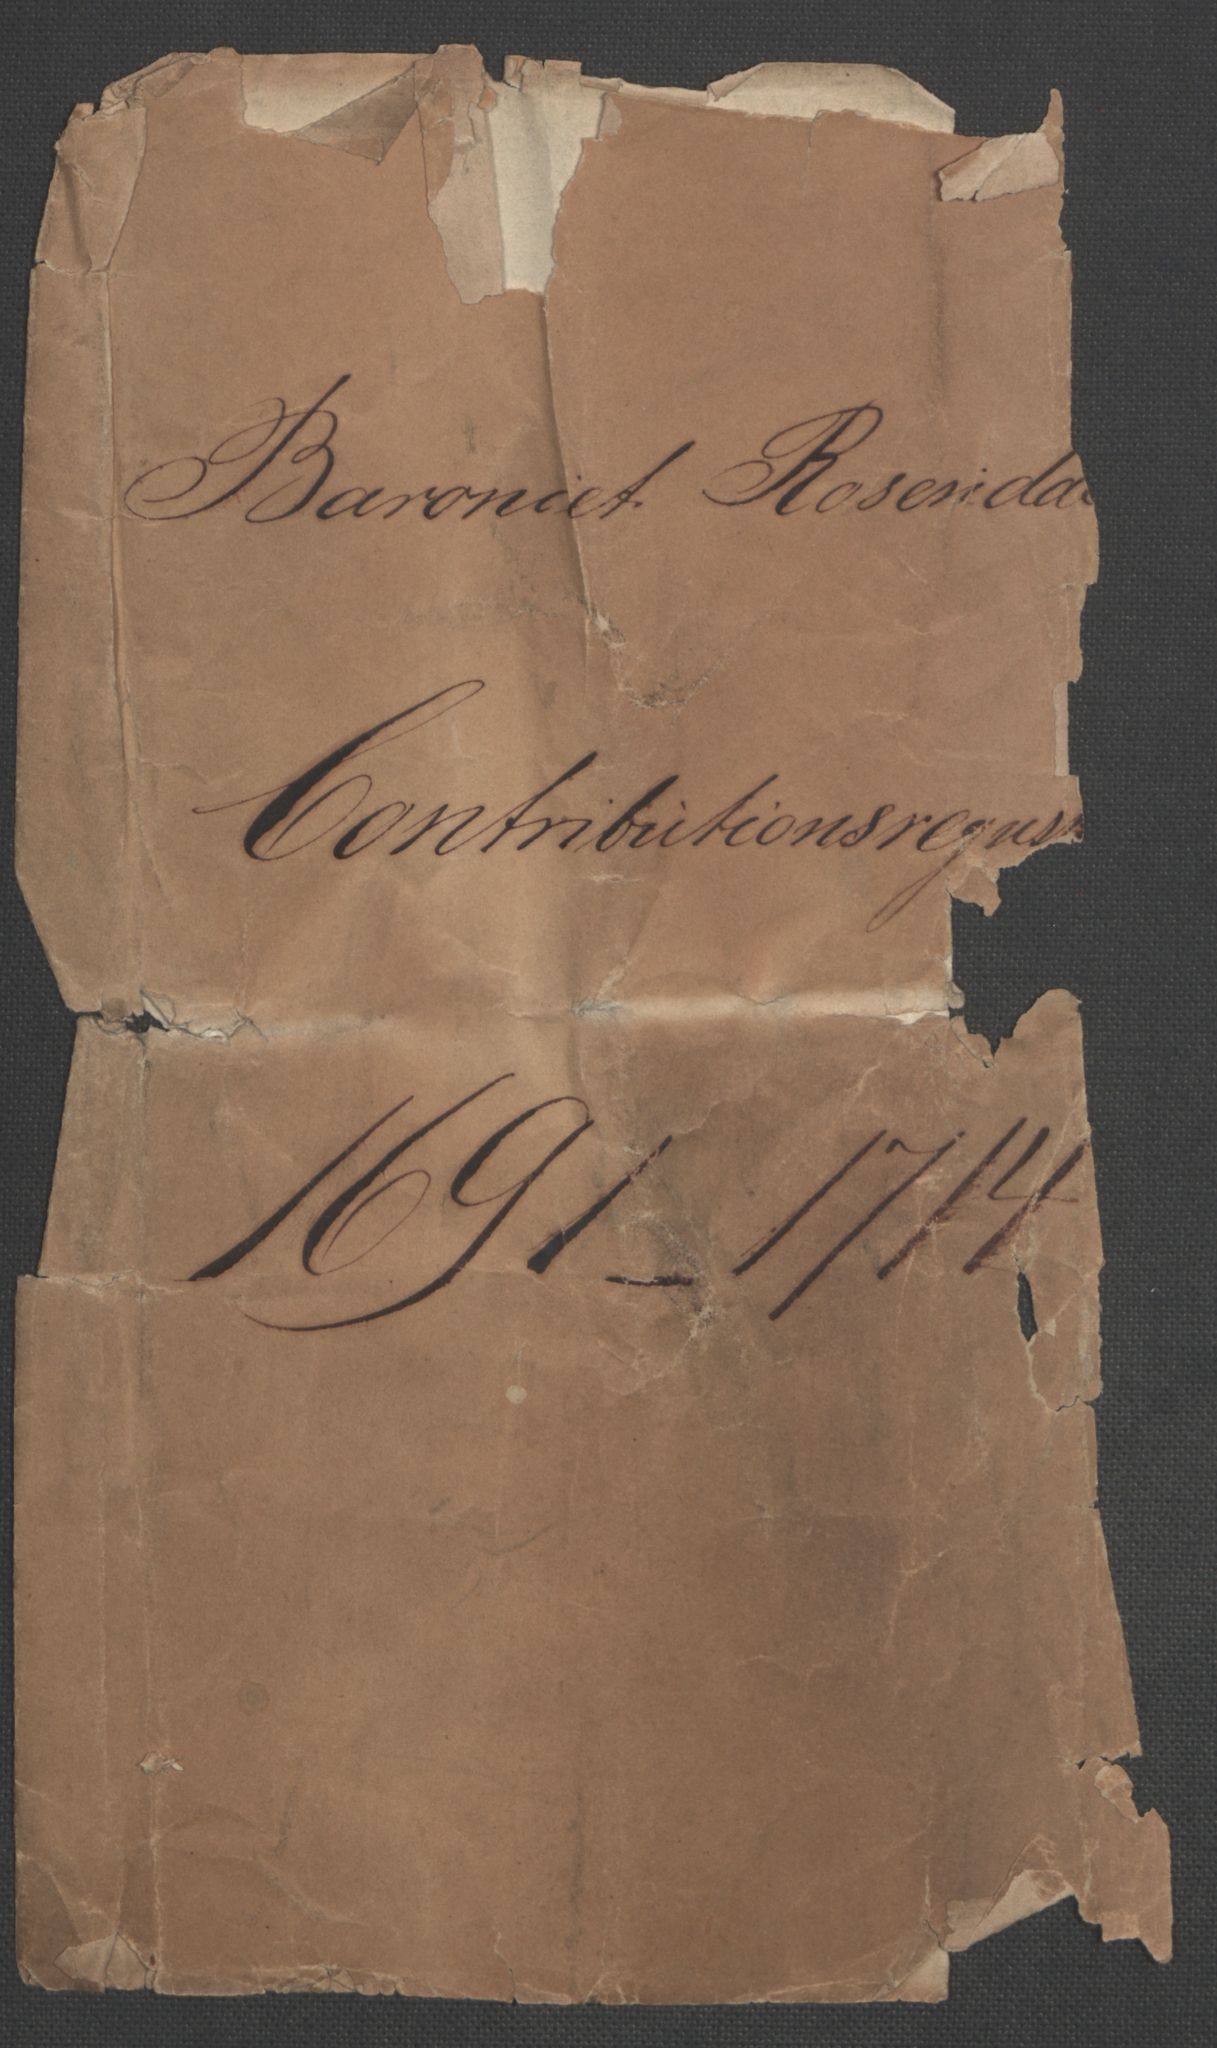 Baroniet Rosendal
Contributionsregist
1691_1714